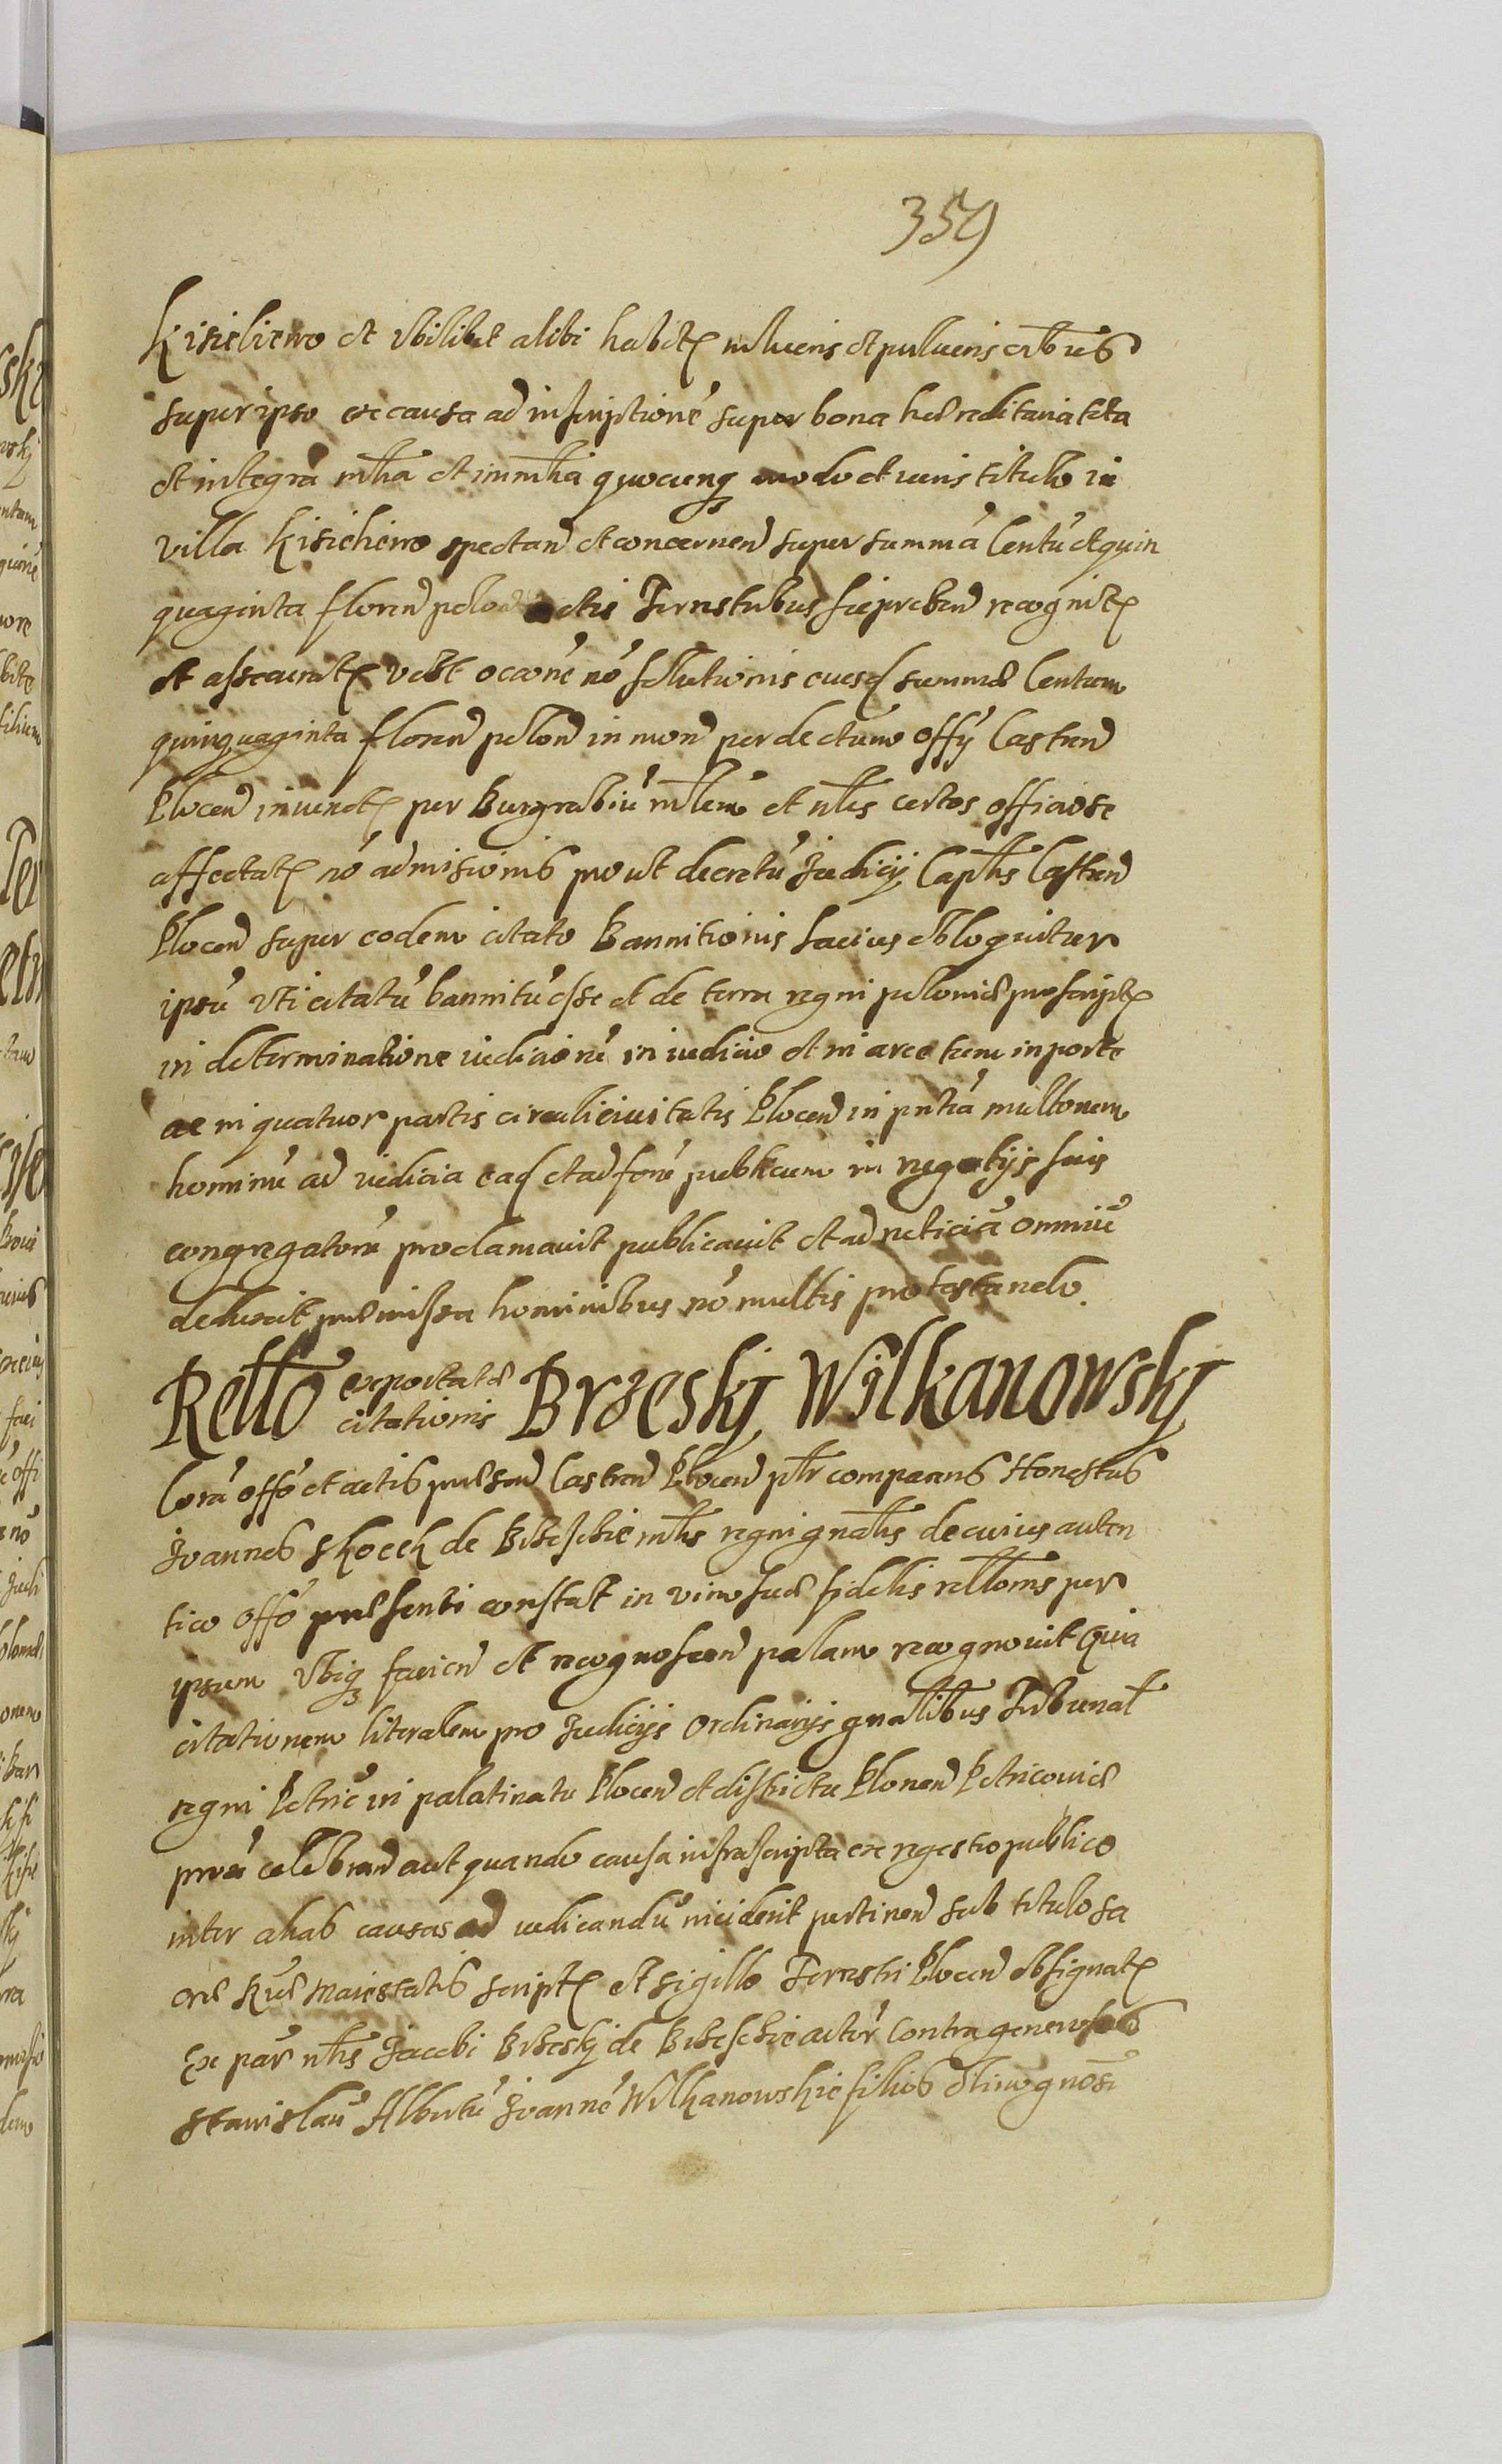 359
Kisieliewo et vbilibet alibi habit. in Aueris et pulueris
super ipso ex causa ad inscriptionē super bona hereditaria tota
et integra mtha et inmtha quocunq modo et iuris titulo in
villa Kisieliewo spectan et concernen super summā Centū et quin
quaginta floren polon actis Terrestribus sieprcen recognit.
et assecurat. vtst occōne nō solutionis eiusd summæ Centum
quinquaginta floren polon in mon per dectum offÿ Castren
Plocen inuenct. per Burgrabiū mtlem et ntles certos officiose
affectat. nō admisionis prout decretū Judicij Captlis Castren
Plocen super eodem citato Bannitionis Lacius obloquitur
ipsū vti citatū bannitū esse et de terra regni poloniæ proscript.
in determinatione iudiciorū in iudicio et in arce tum in porte
ac in quatuor partis circuli ciuitatis Plocen in pntia multorum
hominū ad iudicia ead et ad forū publicum in negotijs suis
congregatorū proclamauit publicauit et ad noticiā omniū
deduxit præmissa hominibus nō multis protestando.
Rellō exportatæ citationis Brzeskj Wilkanowskj
Corā offō et actis præsen Castren Plocen ptlr comparens Honestus
Joannes Skoczk de Brzeschie mtlis regni gnatlis de cuius auten
tico offō præsenti constat in vim suæ fidelis relltonis per
ipsum vbiq facien et recognoscen palam recognouit Quia
citationem literalem pro Judicijs Ordinarijs gnatlibus Tribunat
regni Petric in palatinatu Plocen et districtu Plonen Petricouiæ
proxi celebran aut quando causa infrascripta ex regestro publico
inter alias causas ad iudicandū inciderit pertinen sub titulo sa
cræ Rıæ Maiestatis script. et sigillo Terrestri Plocen obsignat.
Ex par ntlis Jacobi Brzeskj de Brzeschie actor Contra generosos
Stanislaū Albertū Joannē Wilkanowskie filios olim gnosi